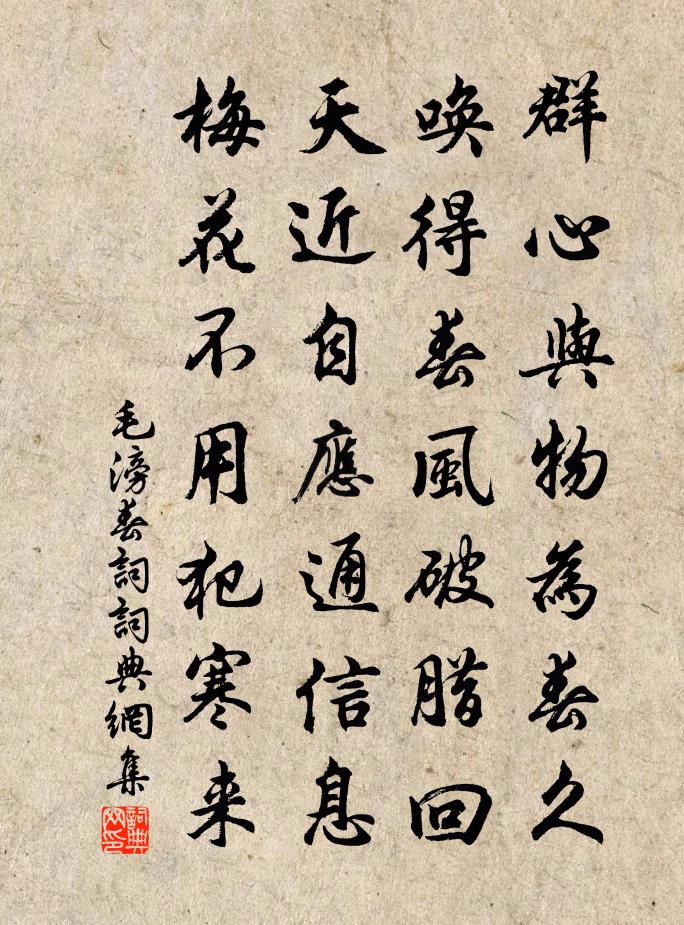 群心與物為春久
喚得春風破腊回
天近自應通信息
梅花不用犯寒来
毛滂春詞詞典網集
詞典网印